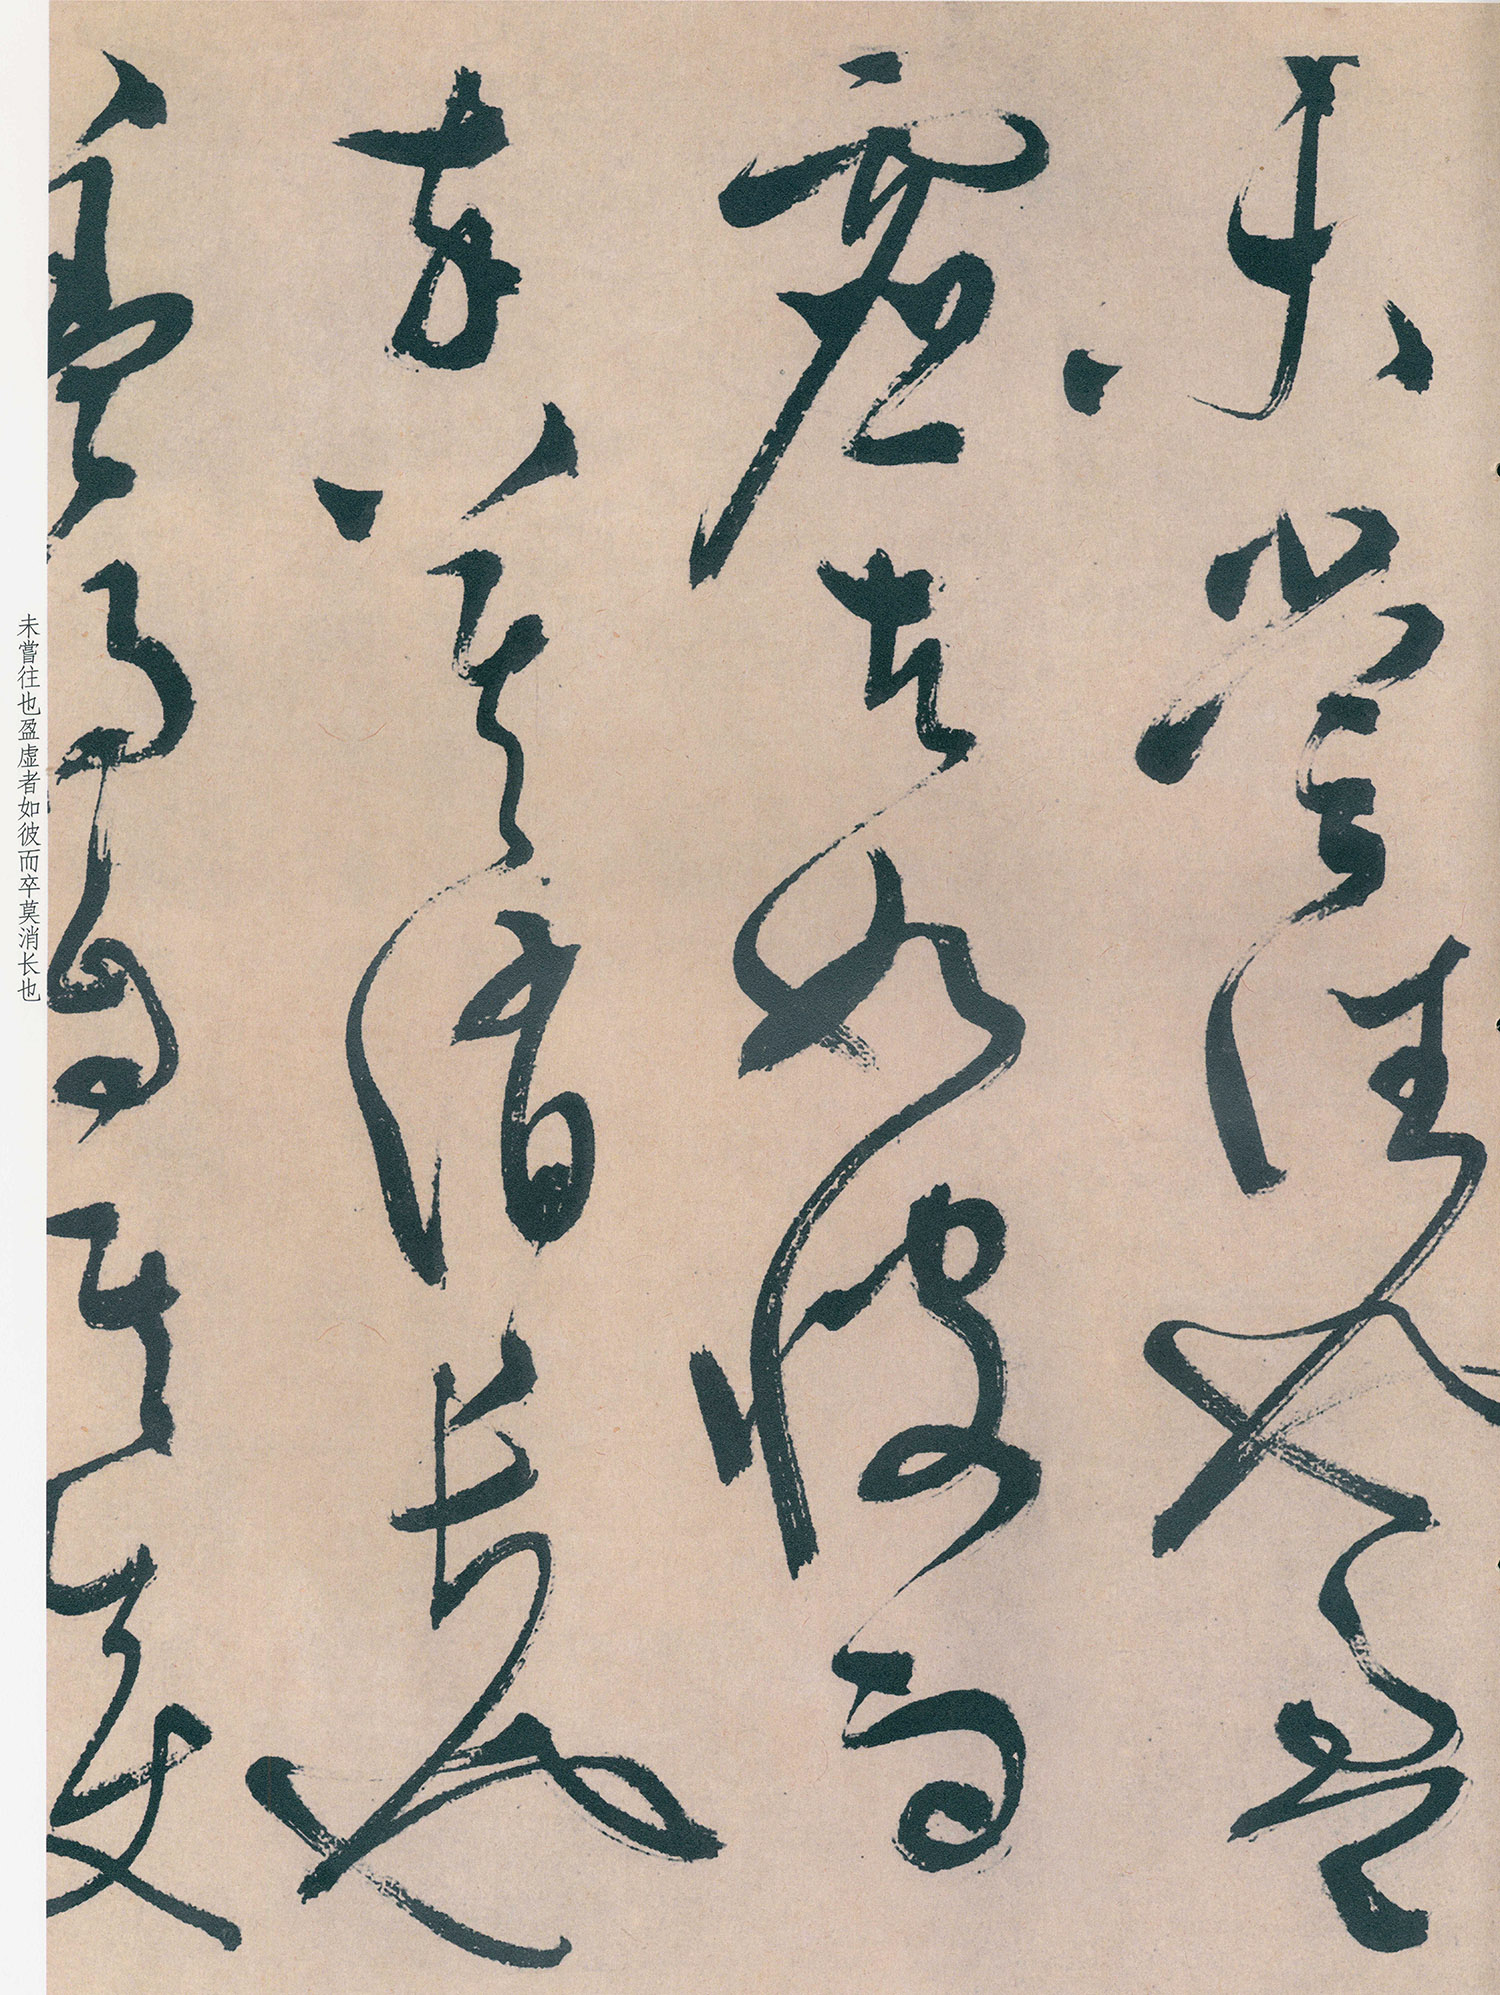 未嘗往也盈
虛者如彼而
卒莫消長也
蓋將自其變
未嘗往也盈虚者如彼而卒莫消长也